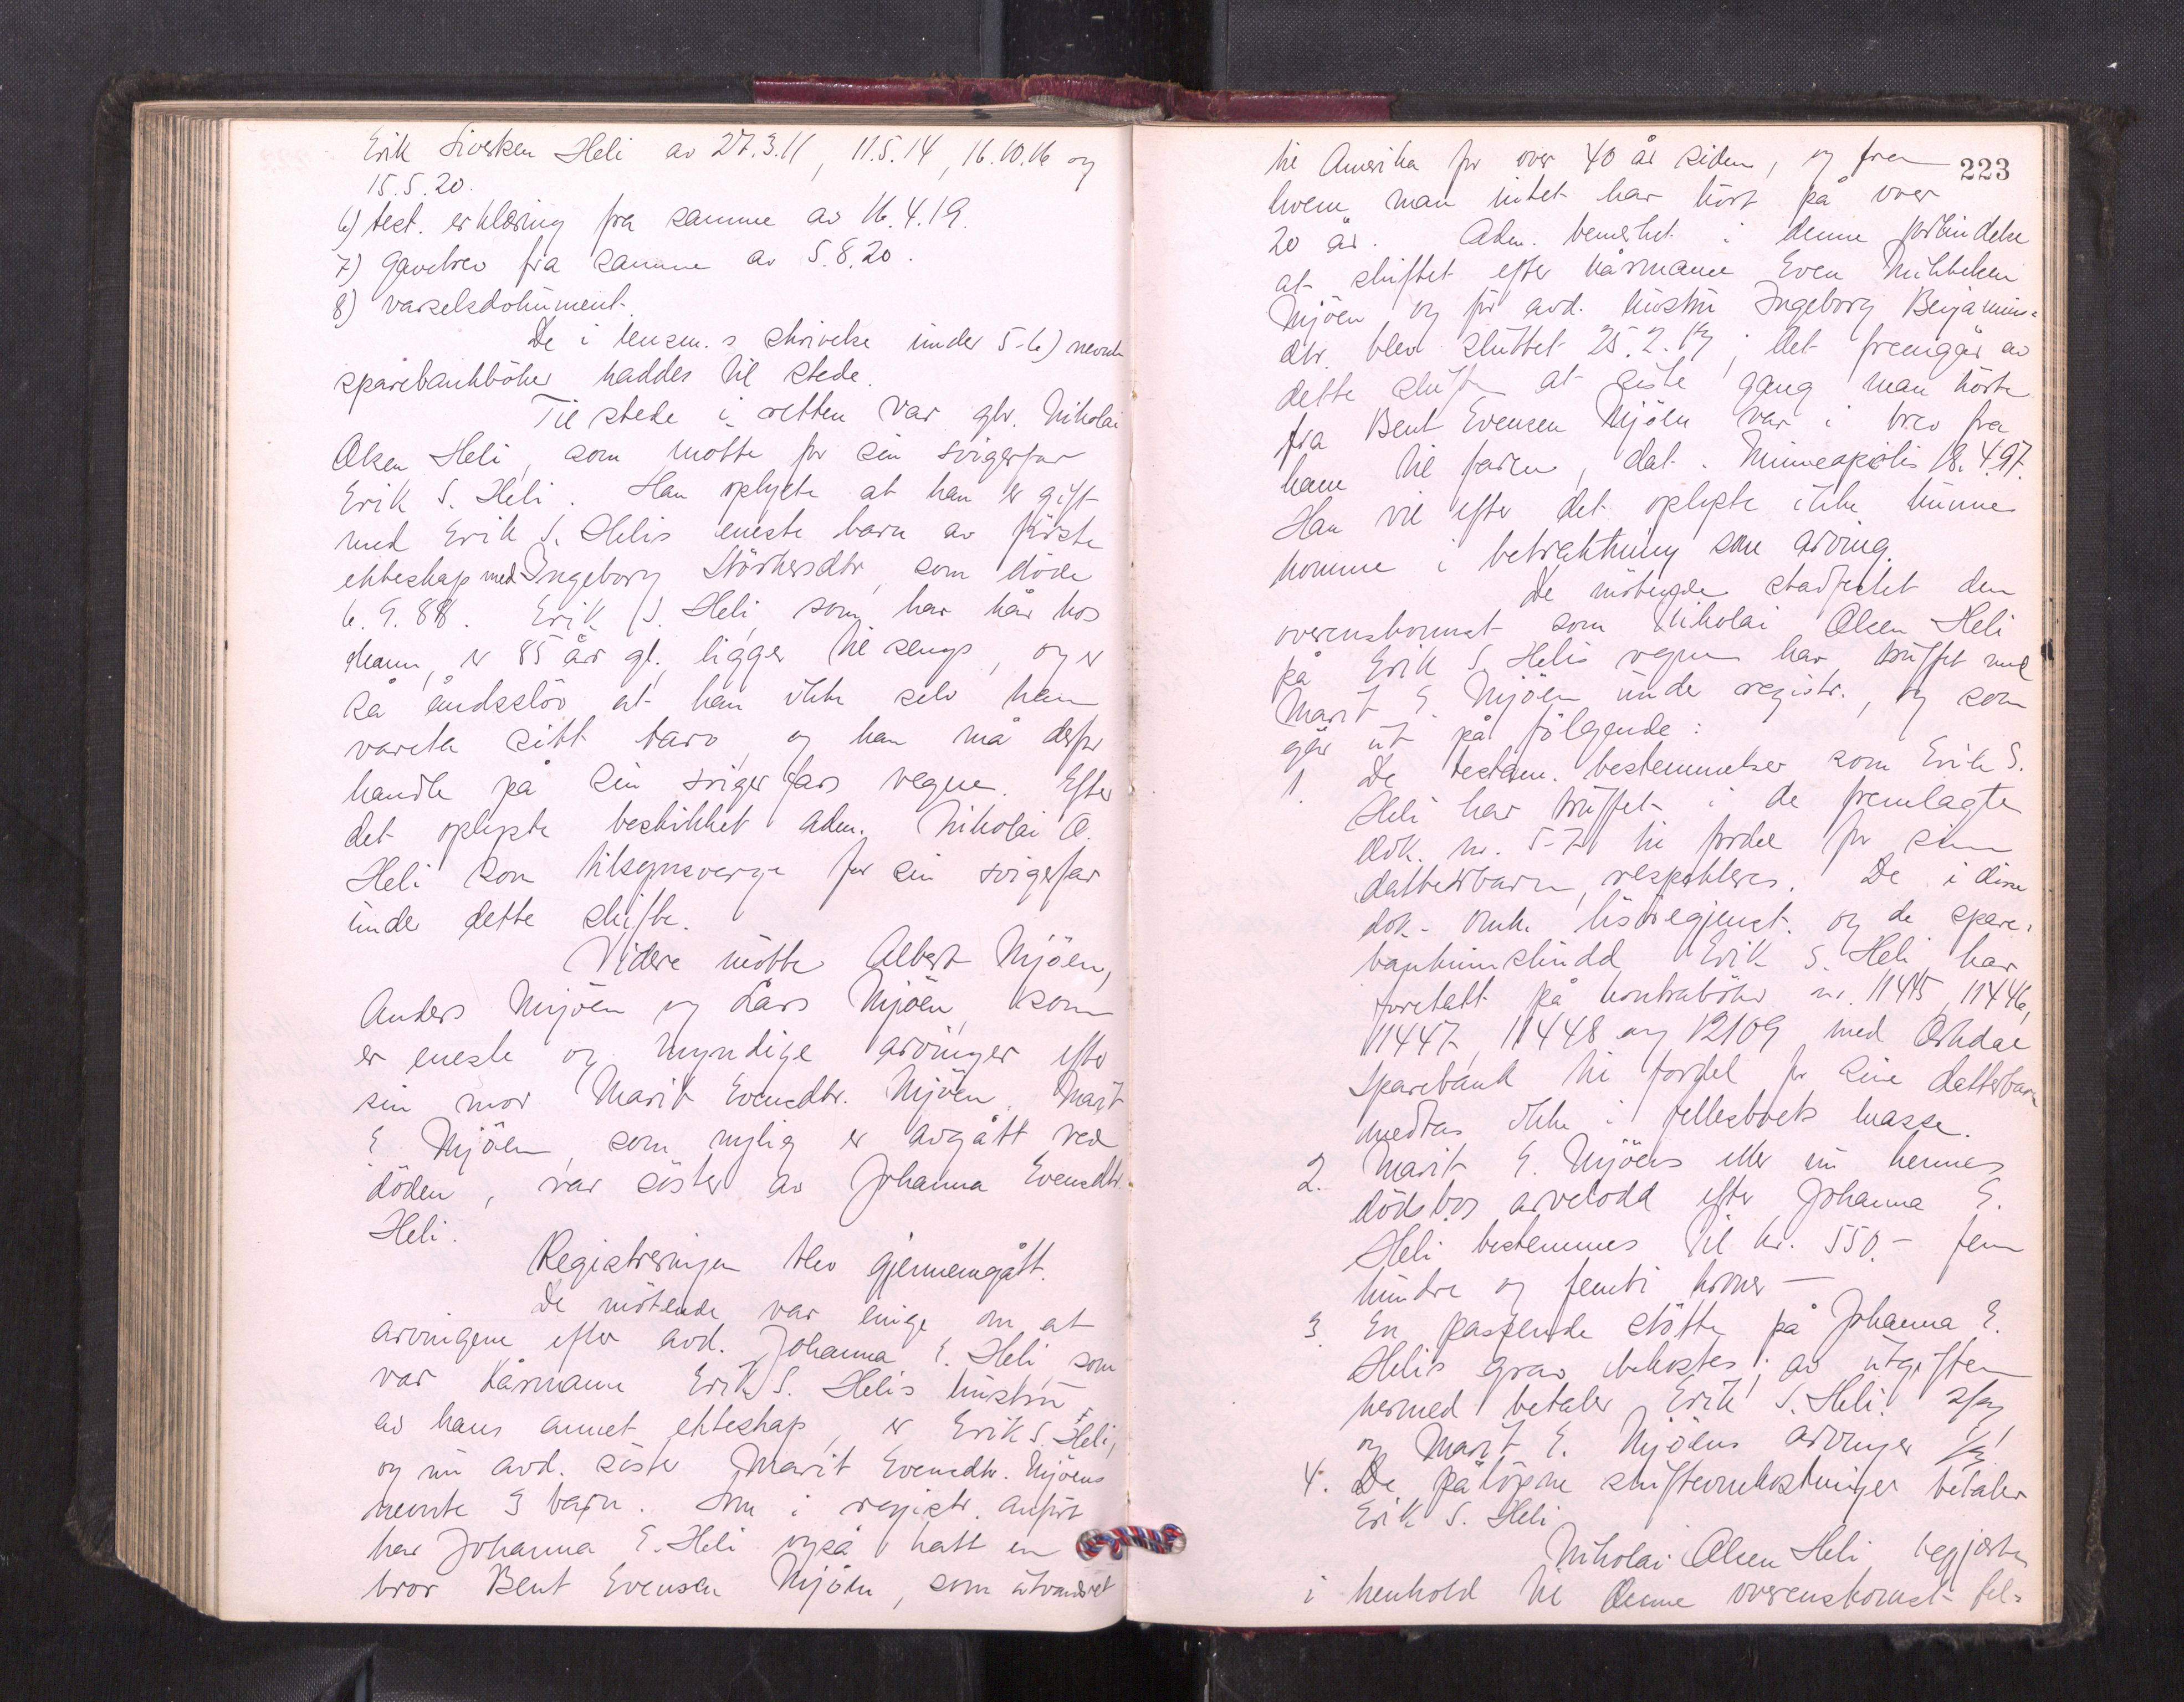 Erik Siversen Heli av 27.3.11, 11.5.14, 16.10.16 og
15.5.20.
6) test. erklæring fra samme av 16.4.19.
7) Gavebrev fra samme av 5.8.20.
8) varselsdokument.
De i lensm.s skrivelse under 5-6) nevnte
sparebankbøker haddes til stede.
Til stede i retten var gbr. Nikolai
Olsen Heli, som møtte for sin svigerfar
Erik S. Heli. Han oplyste at han er gift
med Erik S. Helis eneste barn av første
ekteskap med Ingeborg Størkersdtr, som døde
6.9.88. Erik S. Heli, som har kår hos
ham, er 85 år gl., ligger til sengs, og er
så åndssløv at han ikke selv kan
vareta sitt tarv, og han må derfor
handle på sin svigerfars vegne. Efter
det oplyste beskikket adm. Nikolai O.
Heli som tilsynsverge for sin svigerfar
under dette skifte.
Videre møtte Albert Mjöen,
Anders Mjöen og Lars Mjöen, som
er eneste og myndige arvinger efter
sin mor Marit Evensdtr. Mjöen. Marit
E. Mjöen, som nylig er avgått ved
døden, var søster av Johanna Evensdtr.
Heli.
Registreringen blev gjennemgått.
De møtende var enige om at
arvingene efter avd. Johanna E. Heli, som
var kårmann Erik S. Helis hustru
av hans annet ekteskap, er Erik S. Heli,
og nu avd. søster Marit Evensdtr. Mjöens
nevnte 3 barn. Som i registr. anført
har Johanna E. Heli også hatt en
bror Bent Evensen Mjöen, som utvandret
223
til Amerika for over 40 år siden, og fra
hvem man intet har hørt på over
20 år. Adm. bemerket i denne forbindelse
at skiftet efter kårmann Even
Mjöen og før avd. hustru Ingeborg Benjamins-
dtr. blev sluttet 25.2.; det fremgår av
dette skifte at siste gang man hørte
fra Bent Evensen Mjöen var i brev fra
ham til faren, dat. Minneapolis 18.4.97.
Han vil efter det oplyste ikke kunne
komme i betraktning som arving.
De møtende stadfestet den
overenskomst som Nikolai Olsen Heli
på Erik S. Helis vegne har truffet med
Marit E. Mjöen under registr., og som
går ut på følgende:
1. De testam. bestemmelser som Erik S.
Heli har truffet i de fremlagte
dok. nr. 5-7 til fordel for sine
datterbarn, respekteres. De i disse
dok. omh. løsøregjenst. og de spare-
bankinnskudd Erik S. Heli har
foretatt på kontrabøker nr. 11445, 11446,
11447, 11448 og 12109 med Orkdal
Sparebank til fordel for sine datterbarn
medtas ikke i fellesboets masse.
2. Marit E. Mjöens eller nu hennes
dødsbos arvelodd efter Johanna E.
Heli bestemmes til kr. 550.- fem
hundre og femti kroner —
3. En passende støtte på Johanna E.
Helis grav bekostes; av utgiftene
hermed betaler Erik S. Heli 2/3
og Marit E. Mjöens arvinger 1/3.
4. De påløpne skifteomkostninger betaler
Erik S. Heli.
Nikolai Olsen Heli begjærte
i henhold til denne overenskomst fel-